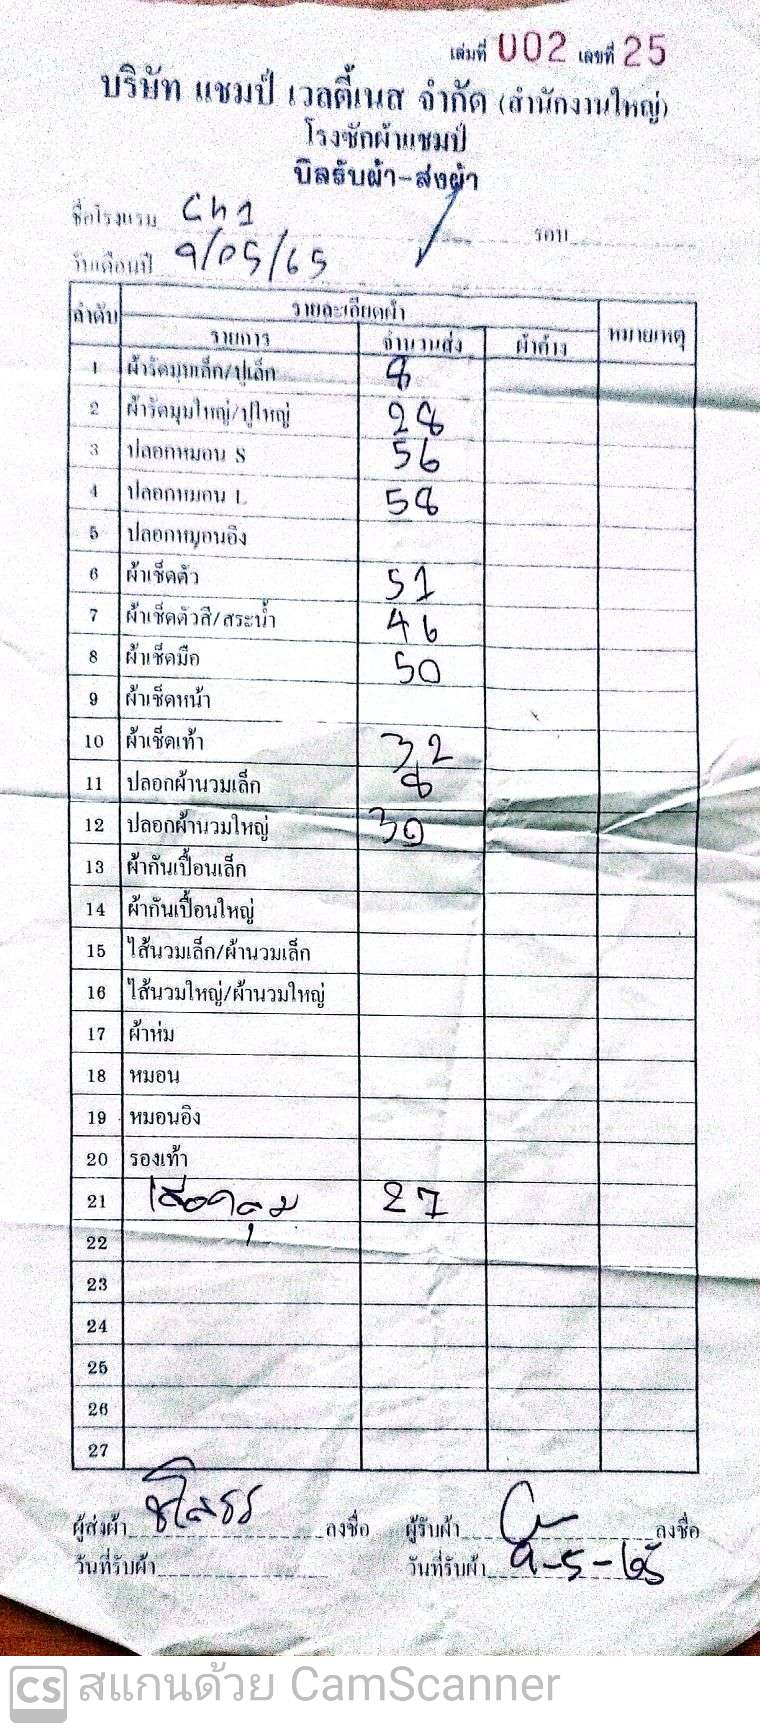 เล่มที่ 002 เลขที่ 25
บริษัท แชมป์ เวลตี้เนส จำกัด (สำนักงานใหญ่)
โรงซักผ้าแชมป์
บิลรับผ้า-ส่งผ้า
ชื่อโรงแรม Ch1 รอบ
วันเดือนปี 9/05/65
ลำดับ รายละเอียดผ้า หมายเหตุ
รายการ จำนวนส่ง ผ้าค้าง
1 ผ้ารัดมุมเล็ก/ปูเล็ก 8
2 ผ้ารัดมุมใหญ่/ปูใหญ่ 28
3 ปลอกหมอน S 56
4 ปลอกหมอน L 58
5 ปลอกหมอนอิง
6 ผ้าเช็ดตัว 51
7 ผ้าเช็ดตัวสี/สระน้ำ 46
8 ผ้าเช็ดมือ 50
9 ผ้าเช็ดหน้า
10 ผ้าเช็ดเท้า 32
11 ปลอกผ้านวมเล็ก 8
12 ปลอกผ้านวมใหญ่ 30
13 ผ้ากันเปื้อนเล็ก
14 ผ้ากันเปื้อนใหญ่
15 ไส้นวมเล็ก/ผ้านวมเล็ก
16 ไส้นวมใหญ่/ผ้านวมใหญ่
17 ผ้าห่ม
18 หมอน
19 หมอนอิง
20 รองเท้า
21 เสื้อคลุม 27
22
23
24
25
26
27
ผู้ส่งผ้า ลงชื่อ ผู้รับผ้า ลงชื่อ
วันที่รับผ้า วันที่รับผ้า 9-5-65
CS สแกนด้วย CamScanner